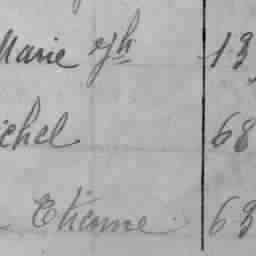 Marie ejh 13
ichel 68
Etienne 63